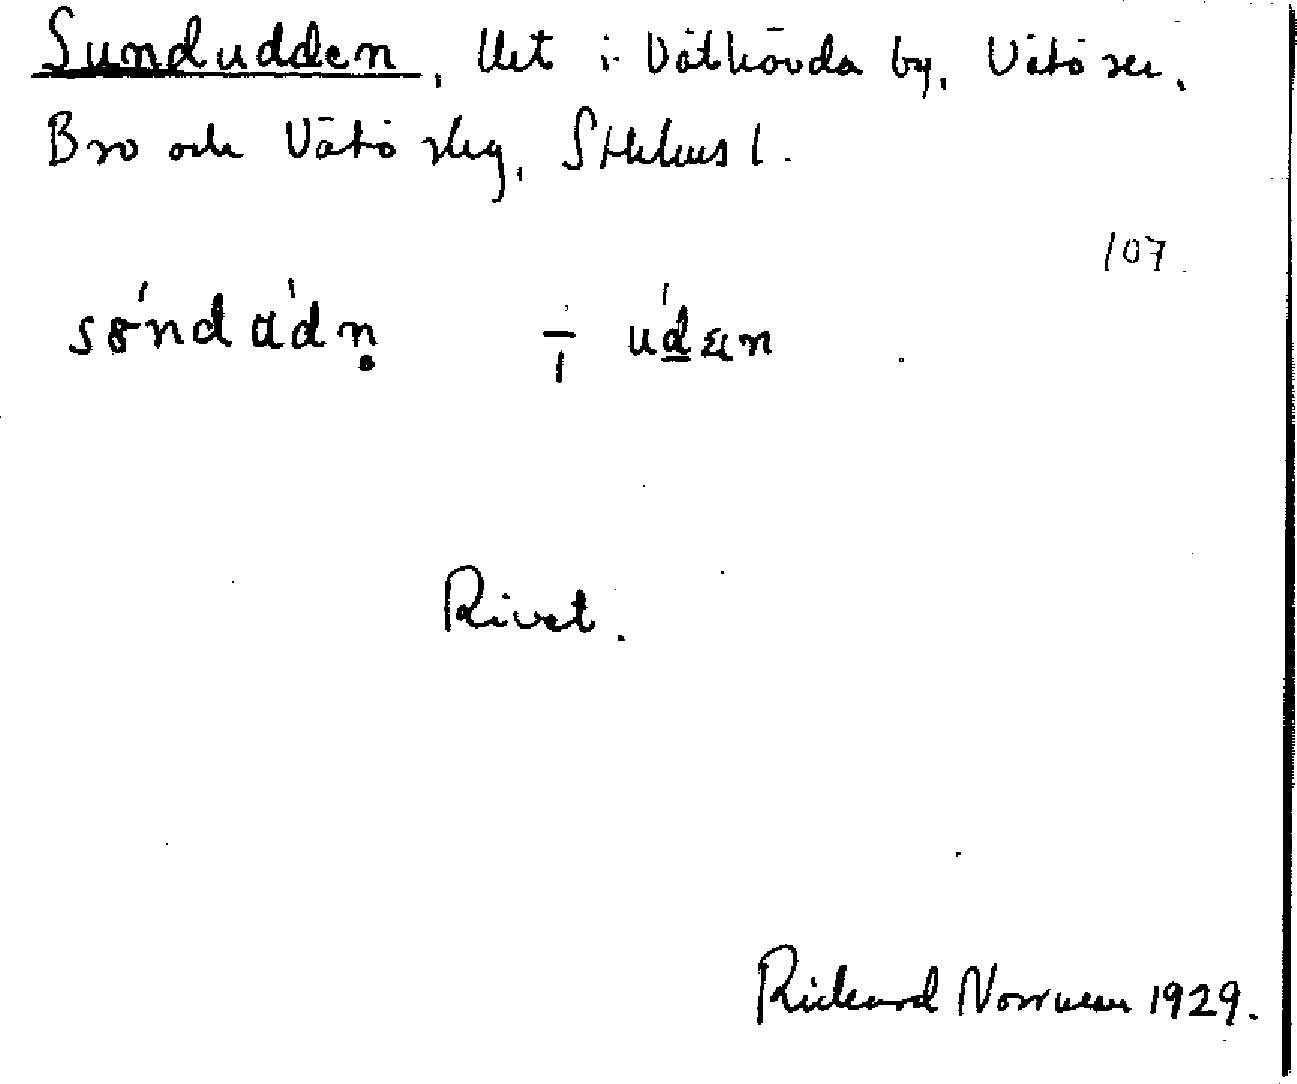 Sundudden, Uet i Väthövda by, Vätö sn,
Bro och Vätö skg, Sthlms l.
107
so̍nd ɯ̍dn̥ ÷ u̍d̲ɛn
Rivet.
Rickard Norrman 1929.